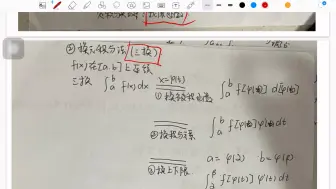 ② 换元积分法 (三换)
f(x)在[a,b]上连续
三换 ∫ₐᵇ f(x)dx x=φ(t)
① 换被积函数 ∫ₐᵇ f[φ(t)] d[φ(t)]
② 换积分元素 ∫ₐᵇ f[φ(t)]φ'(t)dt
a=φ(α) b=φ(β)
③ 换上下限 ∫ f[φ(t)]φ'(t)dt